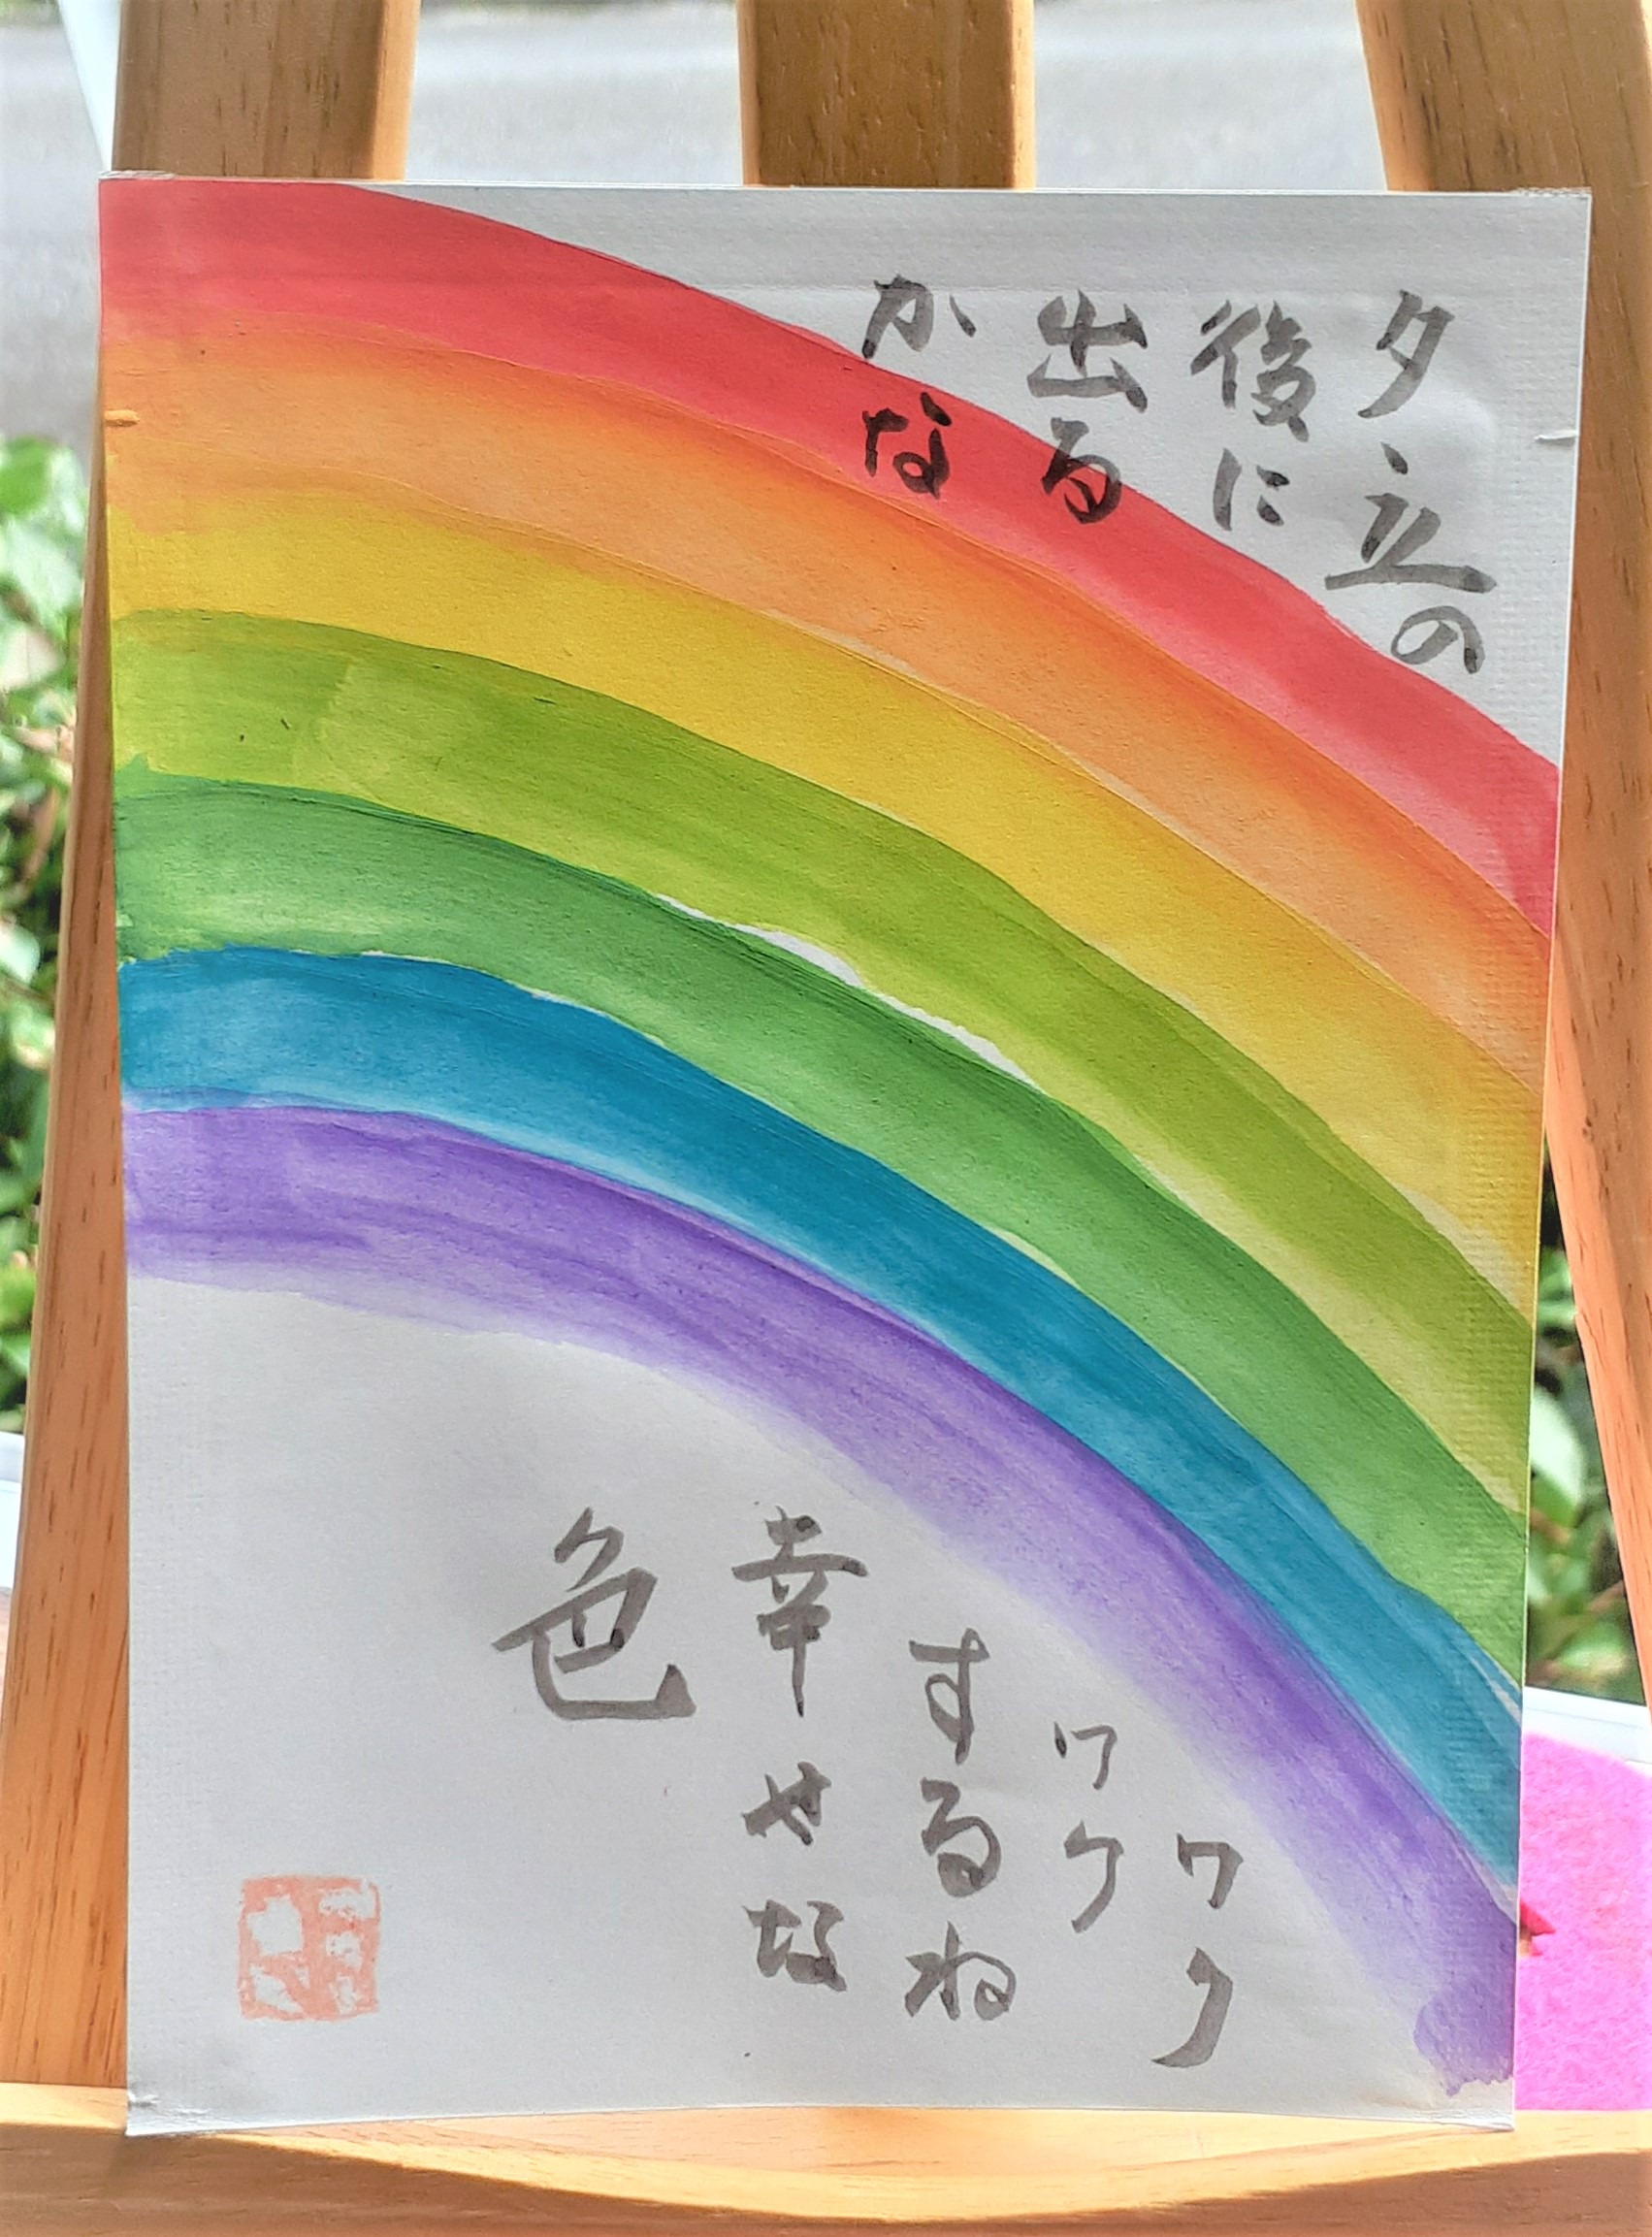 夕立の
後に
出る
かな
ワク
ワク
するね
幸せな
色